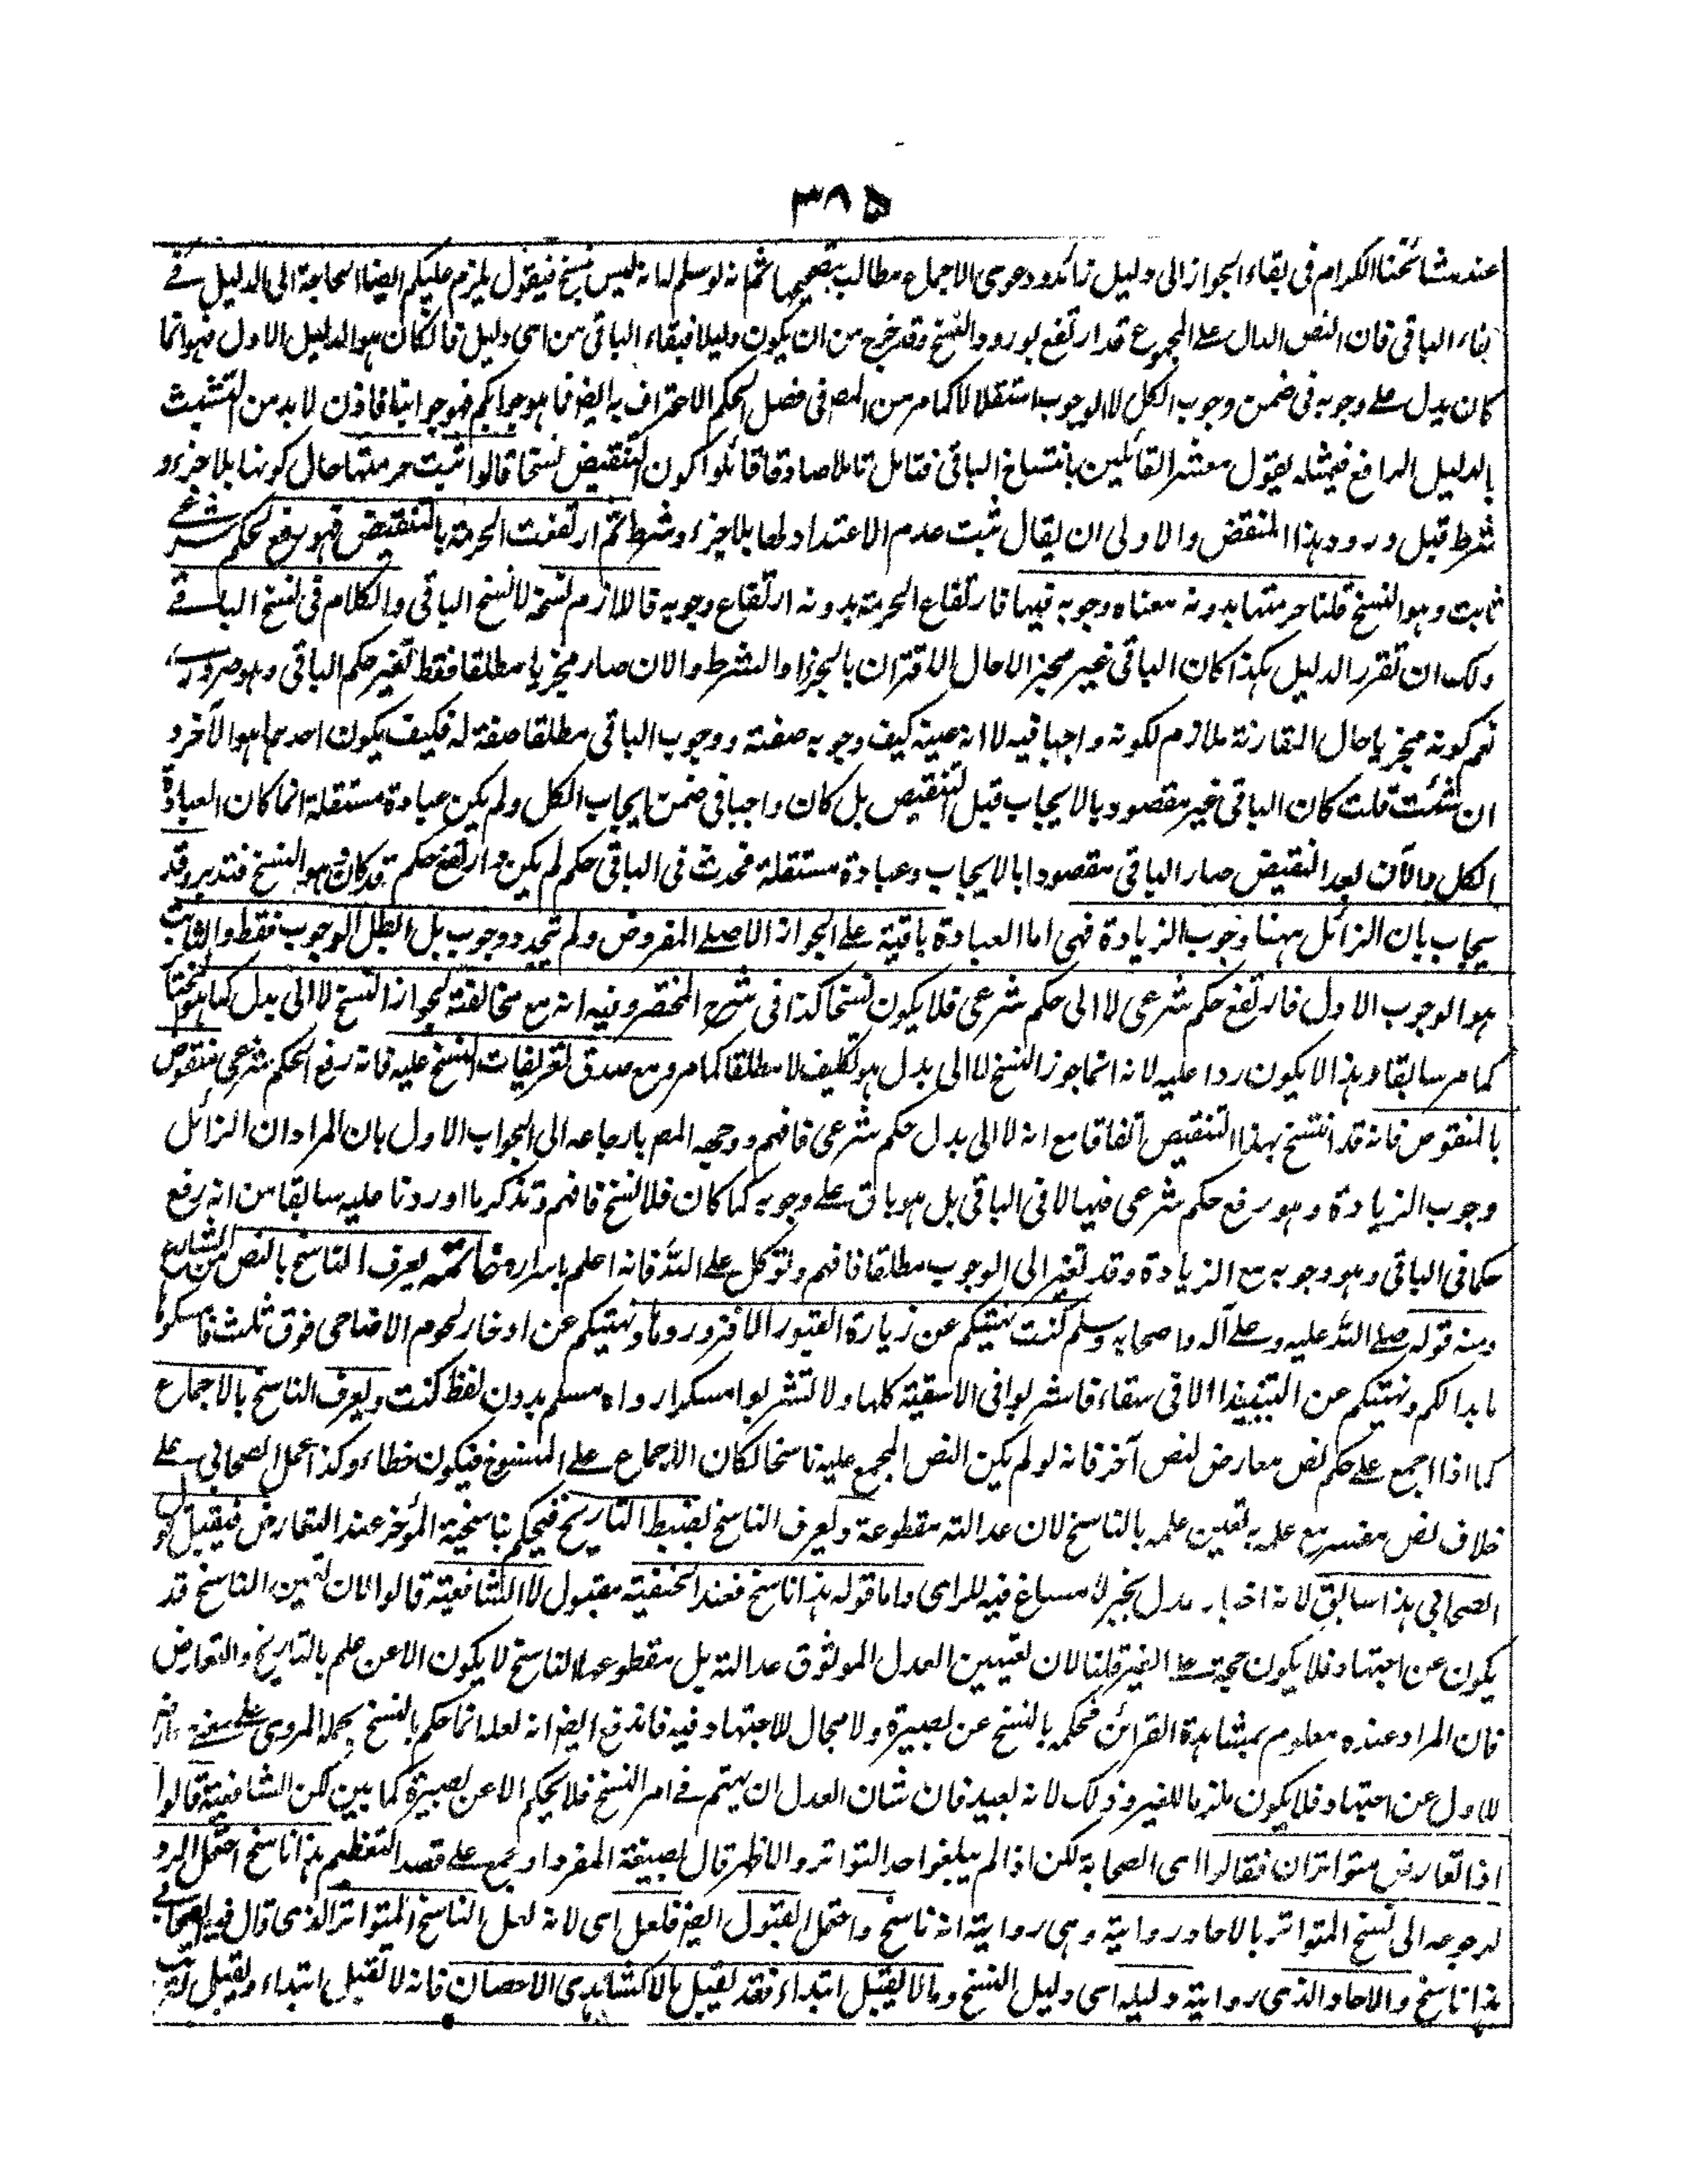 ٣٨٥
عند مشائخنا الكرام في بقاء الجواز الى دليل زائد ودعوى الاجماع مطالب بتصحيحها ثم انه لو سلم له انه ليس بنسخ فيقول يلزم عليكم ايضا الحاجة الى الدليل في
بقاء الباقي فان النص الدال على المجموع قد ارتفع لورود النسخ وقد خرج من ان يكون دليلا فبقاء الباقي من اى دليل فان كان هو الدليل الاول فهو انما
كان يدل على وجوبه في ضمن وجوب الكل لا الوجوب استقلالا كما مر من المصـ في فصل الحكم الاعتراف به ايضـ فما هو جوابكم فهو جوابنا فاذن لا بد من التشبث
بالدليل الرافع فبمثله يقول معشر القائلين بانتساخ الباقي فتامل تاملا صادقا قائلوا كون التنقيص نسخا قالوا ثبت حرمتها حال كونها بلا جزء و
شرط قبل ورود هذا المنقض والاولى ان يقال ثبت عدم الاعتداد لها بلا جزء وشرط ثم ارتفعت الحرمة بالتنقيص فهو رفع لحكم شرعي
ثابت وهو النسخ قلنا حرمتها بدونه معناه وجوبه فيها فارتفاع الحرمة بدونه ارتفاع وجوبه فاللازم نسخه لا نسخ الباقي والكلام في نسخ الباقي
ولك ان تقرر الدليل هكذا كان الباقي غير مجز الا حال الاقتران بالجزء او الشرط والان صار مجزيا مطلقا فقط تغير حكم الباقي وهو ضروري
نعم كونه مجزيا حال المقارنة ملازم لكونه واجبا فيه لا انه عينه كيف وجوبه صفته ووجوب الباقي مطلقا صفة له فكيف يكون احدهما هو الآخر و
ان شئت قلت كان الباقي غير مقصود بالايجاب قبل التنقيص بل كان واجبا في ضمن ايجاب الكل ولم يكن عبادة مستقلة انما كان العبادة
الكل والآن بعد التنقيص صار الباقي مقصودا بالايجاب وعبادة مستقلة فحدث في الباقي حكم لم يكن وارتفع حكم قد كان فهو النسخ فتدبر وقد
يجاب بان الزائل ههنا وجوب الزيادة فهي اما العبادة باقية على الجواز الاصلي المفروض ولم تجدد وجوب بل ابطل الوجوب فقط والثابت
هو الوجوب الاول فارتفع حكم شرعي لا الى حكم شرعي فلا يكون نسخا كذا في شرح المختصر وفيه انه مع مخالفته لجواز النسخ لا الى بدل كما هو المختار
كما مر سابقا وهذا لا يكون ردا عليه لانه انما جوز النسخ لا الى بدل هو تكليف لا مطلقا كما مر ومع صدق تعريفات النسخ عليه فانه رفع الحكم شرعي منقوض
بالمنقوص فانه قد انتسخ بهذا التنقيص اتفاقا مع انه لا الى بدل حكم شرعي فافهم ووجهه المصـ بارجاعه الى الجواب الاول بان المراد ان الزائل
وجوب الزيادة وهو رفع حكم شرعي فيها لا في الباقي بل هو باق على وجوبه كما كان فلا نسخ فافهم وتذكر ما اوردنا عليه سابقا من انه رفع
حكما في الباقي وهو وجوبه مع الزيادة وقد تغير الى الوجوب مطلقا فافهم وتوكل على اللّٰه فانه اعلم باسراره خاتمة يعرف الناسخ بالنص من الشارع
ومنه قوله صلى اللّٰه عليه وعلى آله واصحابه وسلم كنت نهيتكم عن زيارة القبور الا فزوروها ونهيتكم عن ادخار لحوم الاضاحي فوق ثلث فامسكوا
ما بدا لكم ونهيتكم عن النبيذ الا في سقاء فاشربوا في الاسقية كلها ولا تشربوا مسكرا رواه مسلم بدون لفظ كنت ويعرف الناسخ بالاجماع
كما اذا اجمع على حكم نص معارض لنص آخر فانه لو لم يكن النص المجمع عليه ناسخا لكان الاجماع على المنسوخ فيكون خطاء وكذا عمل الصحابي على
خلاف نص مفسر مع علمه به تعين علمه بالناسخ لان عدالته مقطوعة ويعرف الناسخ بضبط التاريخ فيحكم بناسخية المؤخر عند التعارض فيقبل قول
الصحابي هذا سابق لانه اخبار عدل بخبر لا مساغ فيه للراى واما قوله هذا ناسخ فعند الحنفية مقبول لا الشافعية قالوا لان تعيين الناسخ قد
يكون عن اجتهاد فلا يكون حجة على الغير قلنا لان تعيين العدل الموثوق عدالته بل مقطوعها الناسخ لا يكون الا عن علم بالتاريخ والتعارض
فان المراد عنده معلوم بمشاهدة القرائن فحكمه بالنسخ عن بصيرة ولا مجال للاجتهاد فيه فاندفع ايضـ انه لعله انما حكم بالنسخ بحمله المروى على معنى
للاول عن اجتهاد فلا يكون ملزما للغير وذلك لانه بعيد فان شان العدل ان يهتم في امر النسخ فلا يحكم الا عن بصيرة كما بين لكن الشافعية قالوا
اذا تعارض متواتران فقالوا اى الصحابة لكن اذا لم يبلغوا حد التواتر والاظهر قال بصيغة المفرد او جمع على قصد التعظيم هذا ناسخ احتمل الرد
لرجوعه الى نسخ المتواتر بالاحاد رواية وهى رواية انه ناسخ واحتمل القبول ايضـ فلعل اى لانه لعل الناسخ المتواتر الذى قال فيه الصحابي
هذا ناسخ والاحاد الذى رواية دليله اى دليل النسخ وما لا يقبل ابتداء فقد يقبل مالا كشاهدى الاحصان فانه لا تقبل ابتداء ويقبل